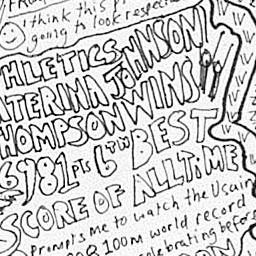 I think this p
going to look respec
HLETICS JOHNSON!
ATERINA
HOMPSON WINS!
6981 PTS 6TH BEST
SCORE OF ALL TIME
Prompts me to watch the Usain
100m world record
celebrating before